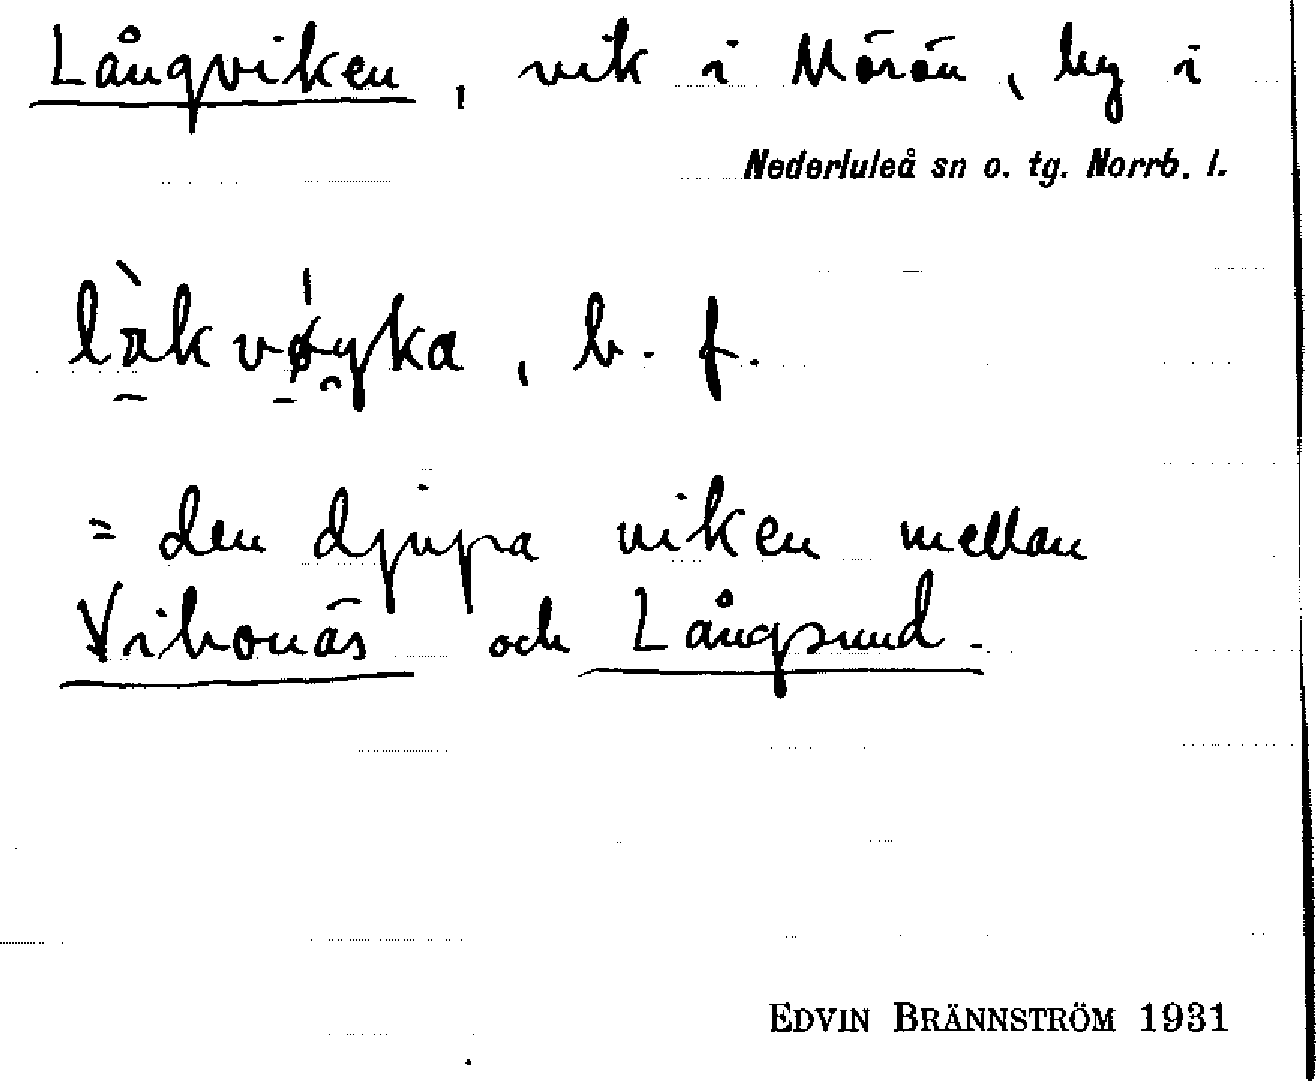 Långviken, vik i Mörön, by i
Nederluleå sn o. tg. Norrb. l.
, b. f.
= den djupa viken mellan
Vibonäs och Långsund.
EDVIN BRÄNNSTRÖM 1931